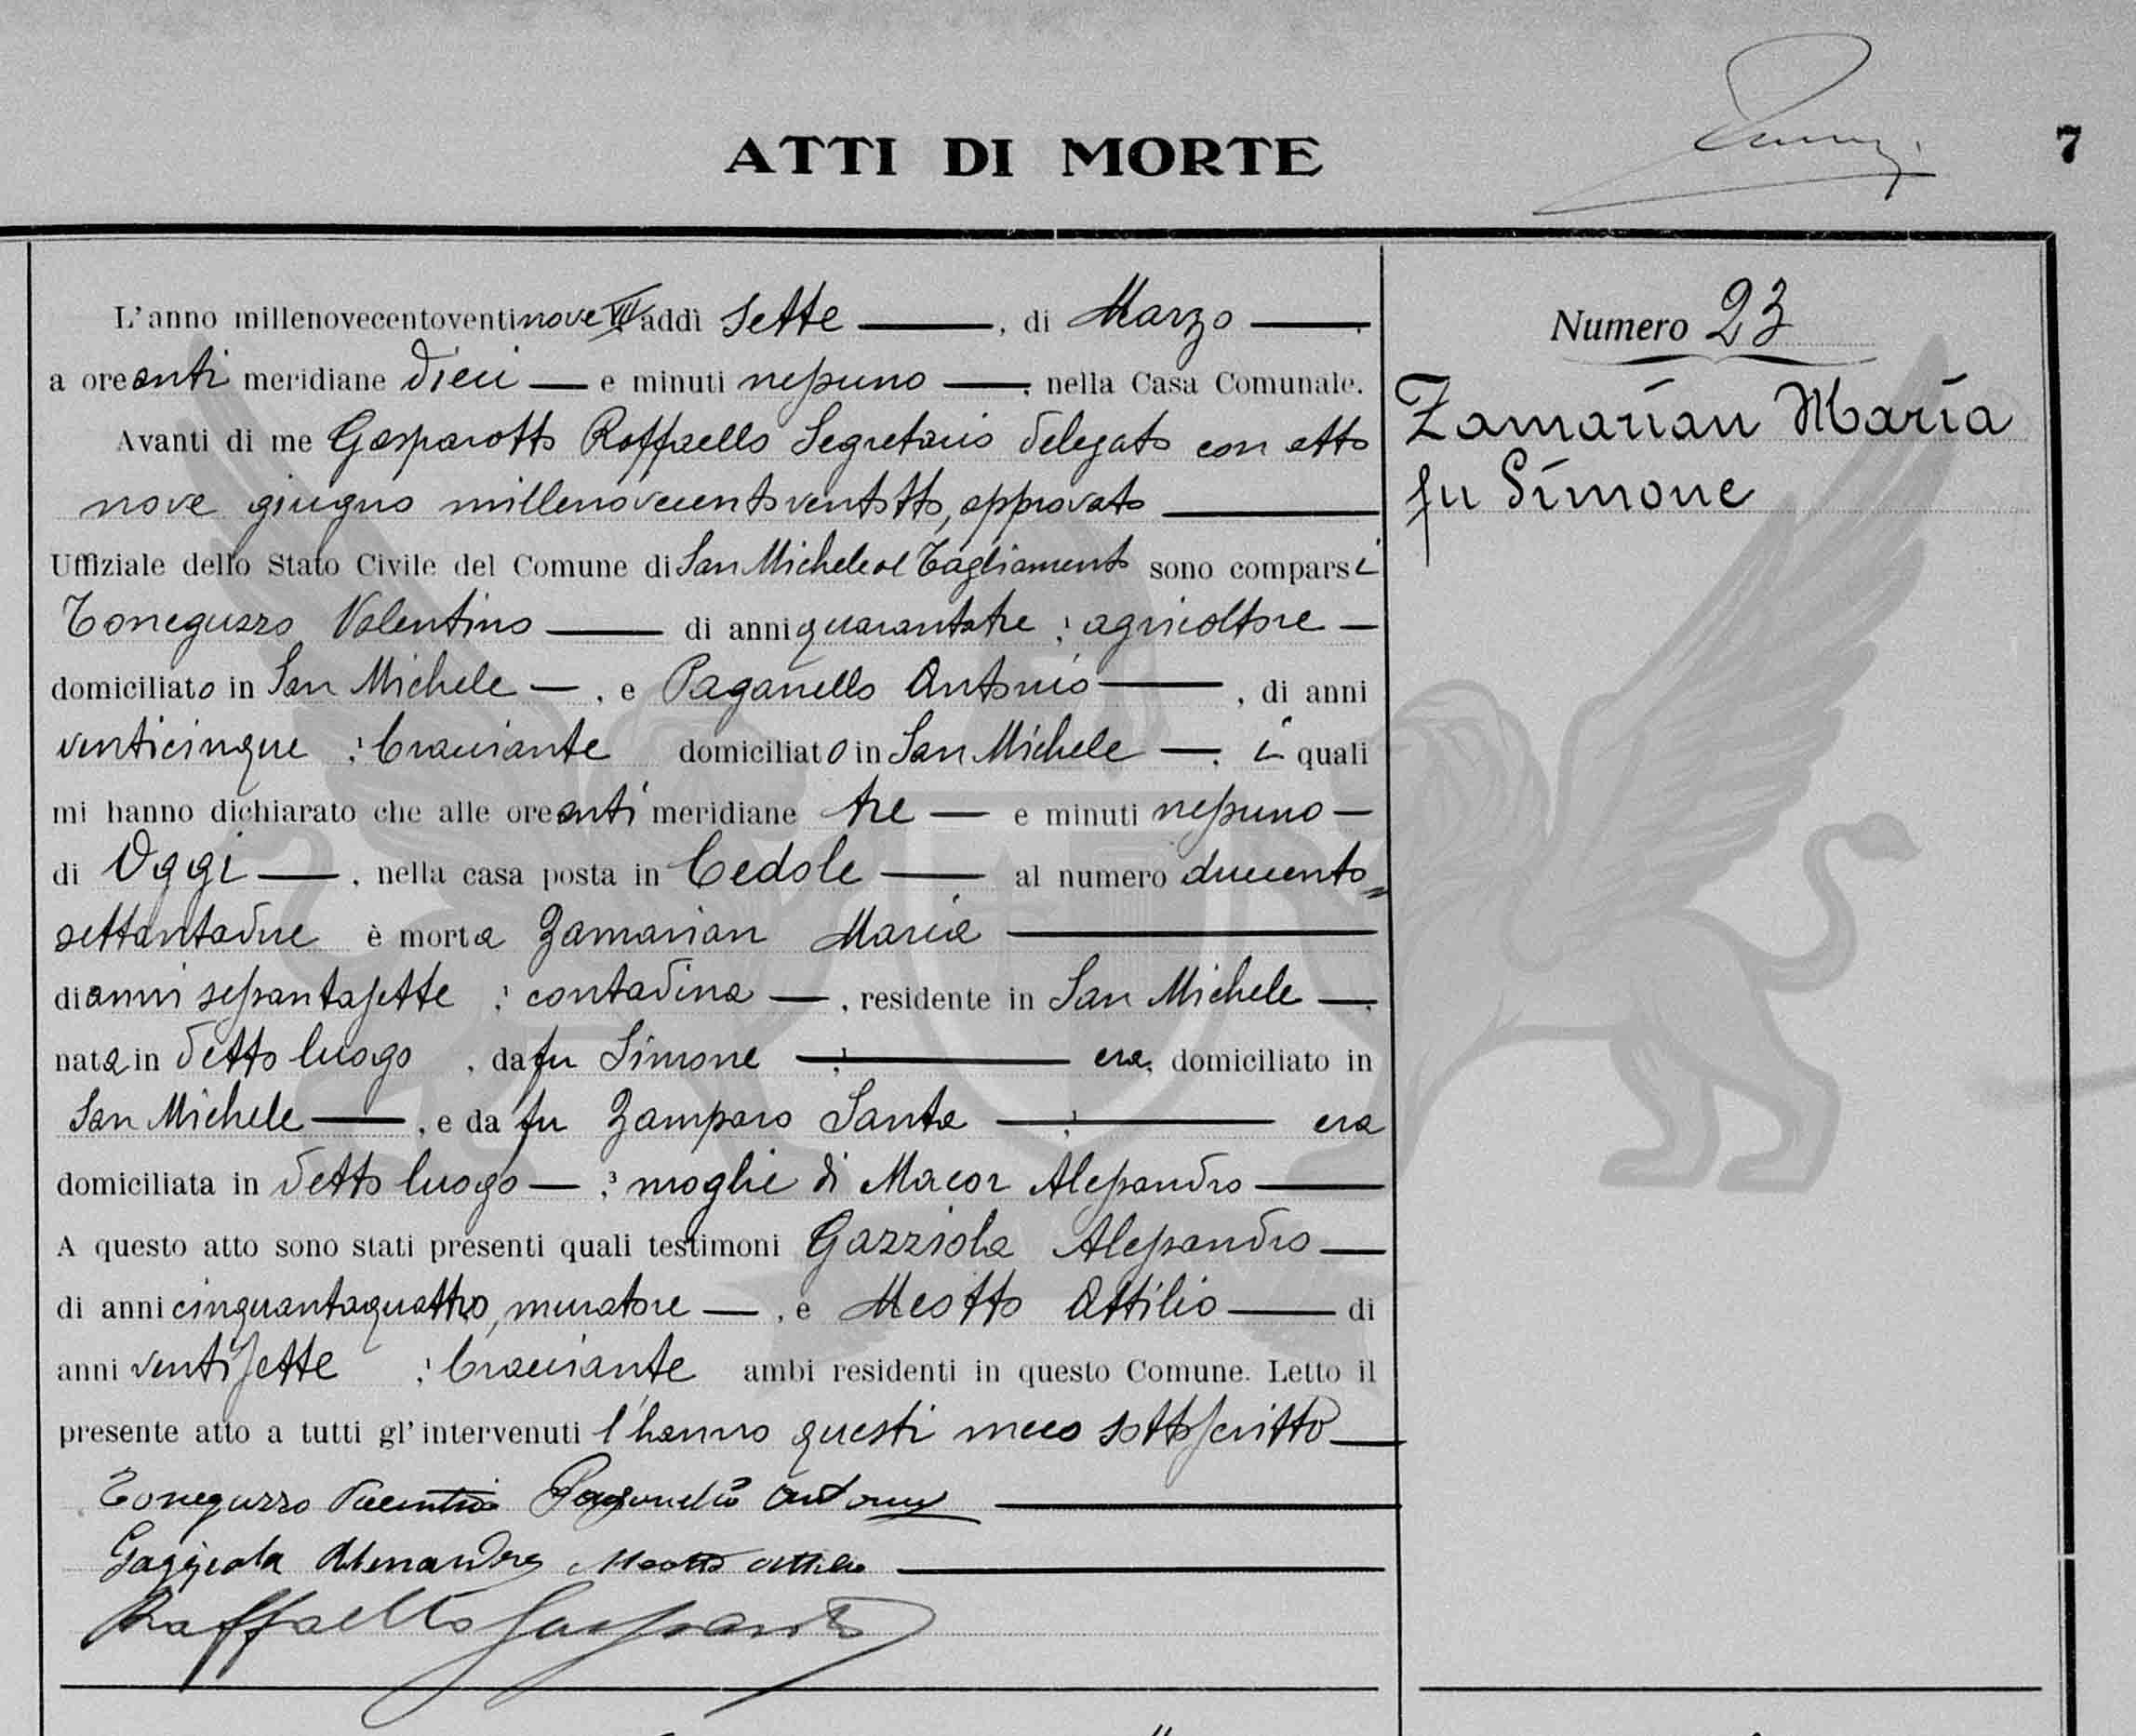 ATTI DI MORTE
7
L'anno millenovecentoventinove VII addì Sette, di Marzo
a ore anti meridiane dieci e minuti nessuno, nella Casa Comunale.
Avanti di me Gasparotto Raffaello Segretario delegato con atto
nove giugno millenovecentoventotto, approvato
Uffiziale dello Stato Civile del Comune di San Michele al Tagliamento sono comparsi
Toneguzzo Valentino di anni quarantatre, agricoltore
domiciliato in San Michele, e Paganello Antonio, di anni
venticinque, bracciante domiciliato in San Michele, i quali
mi hanno dichiarato che alle ore anti meridiane tre e minuti nessuno
di Oggi, nella casa posta in Cedole al numero duecento=
settantadue è morta Zamarian Maria
di anni sessantasette, contadina, residente in San Michele,
nata in detto luogo, da fu Simone, era, domiciliato in
San Michele, e da fu Zamparo Santa, era
domiciliata in detto luogo, moglie di Macor Alessandro
A questo atto sono stati presenti quali testimoni Gazziola Alessandro
di anni cinquantaquattro, muratore, e Meotto Attilio di
anni ventisette, bracciante ambi residenti in questo Comune. Letto il
presente atto a tutti gl'intervenuti l'hanno questi meco sottoscritto
Toneguzzo Valentino Paganello Antonio
Gazziola Alessandro Meotto Attilio
Raffaello Gasparotto
Numero 23
Zamarian Maria
fu Simone